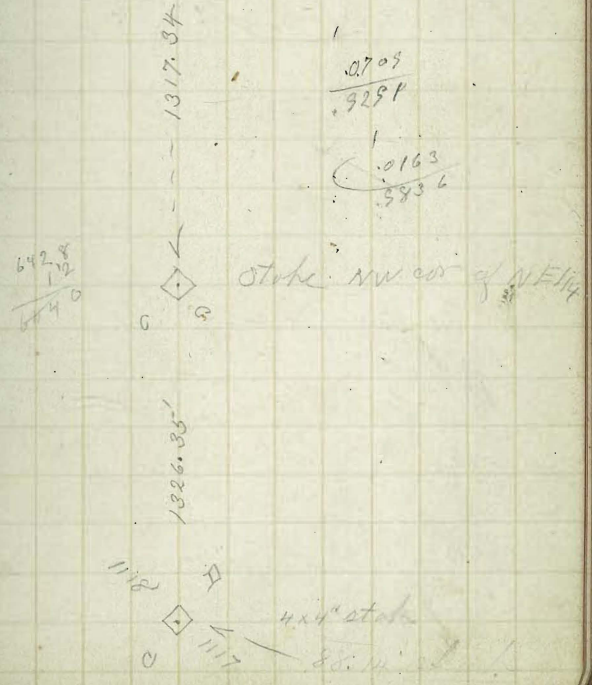 1317.34
1
.0709
.9291
1
.0163
.9836
642.8
1.2
644 0
Stake NW cor of NE 1/4
1326.35'
1118
4x4" stake
1117